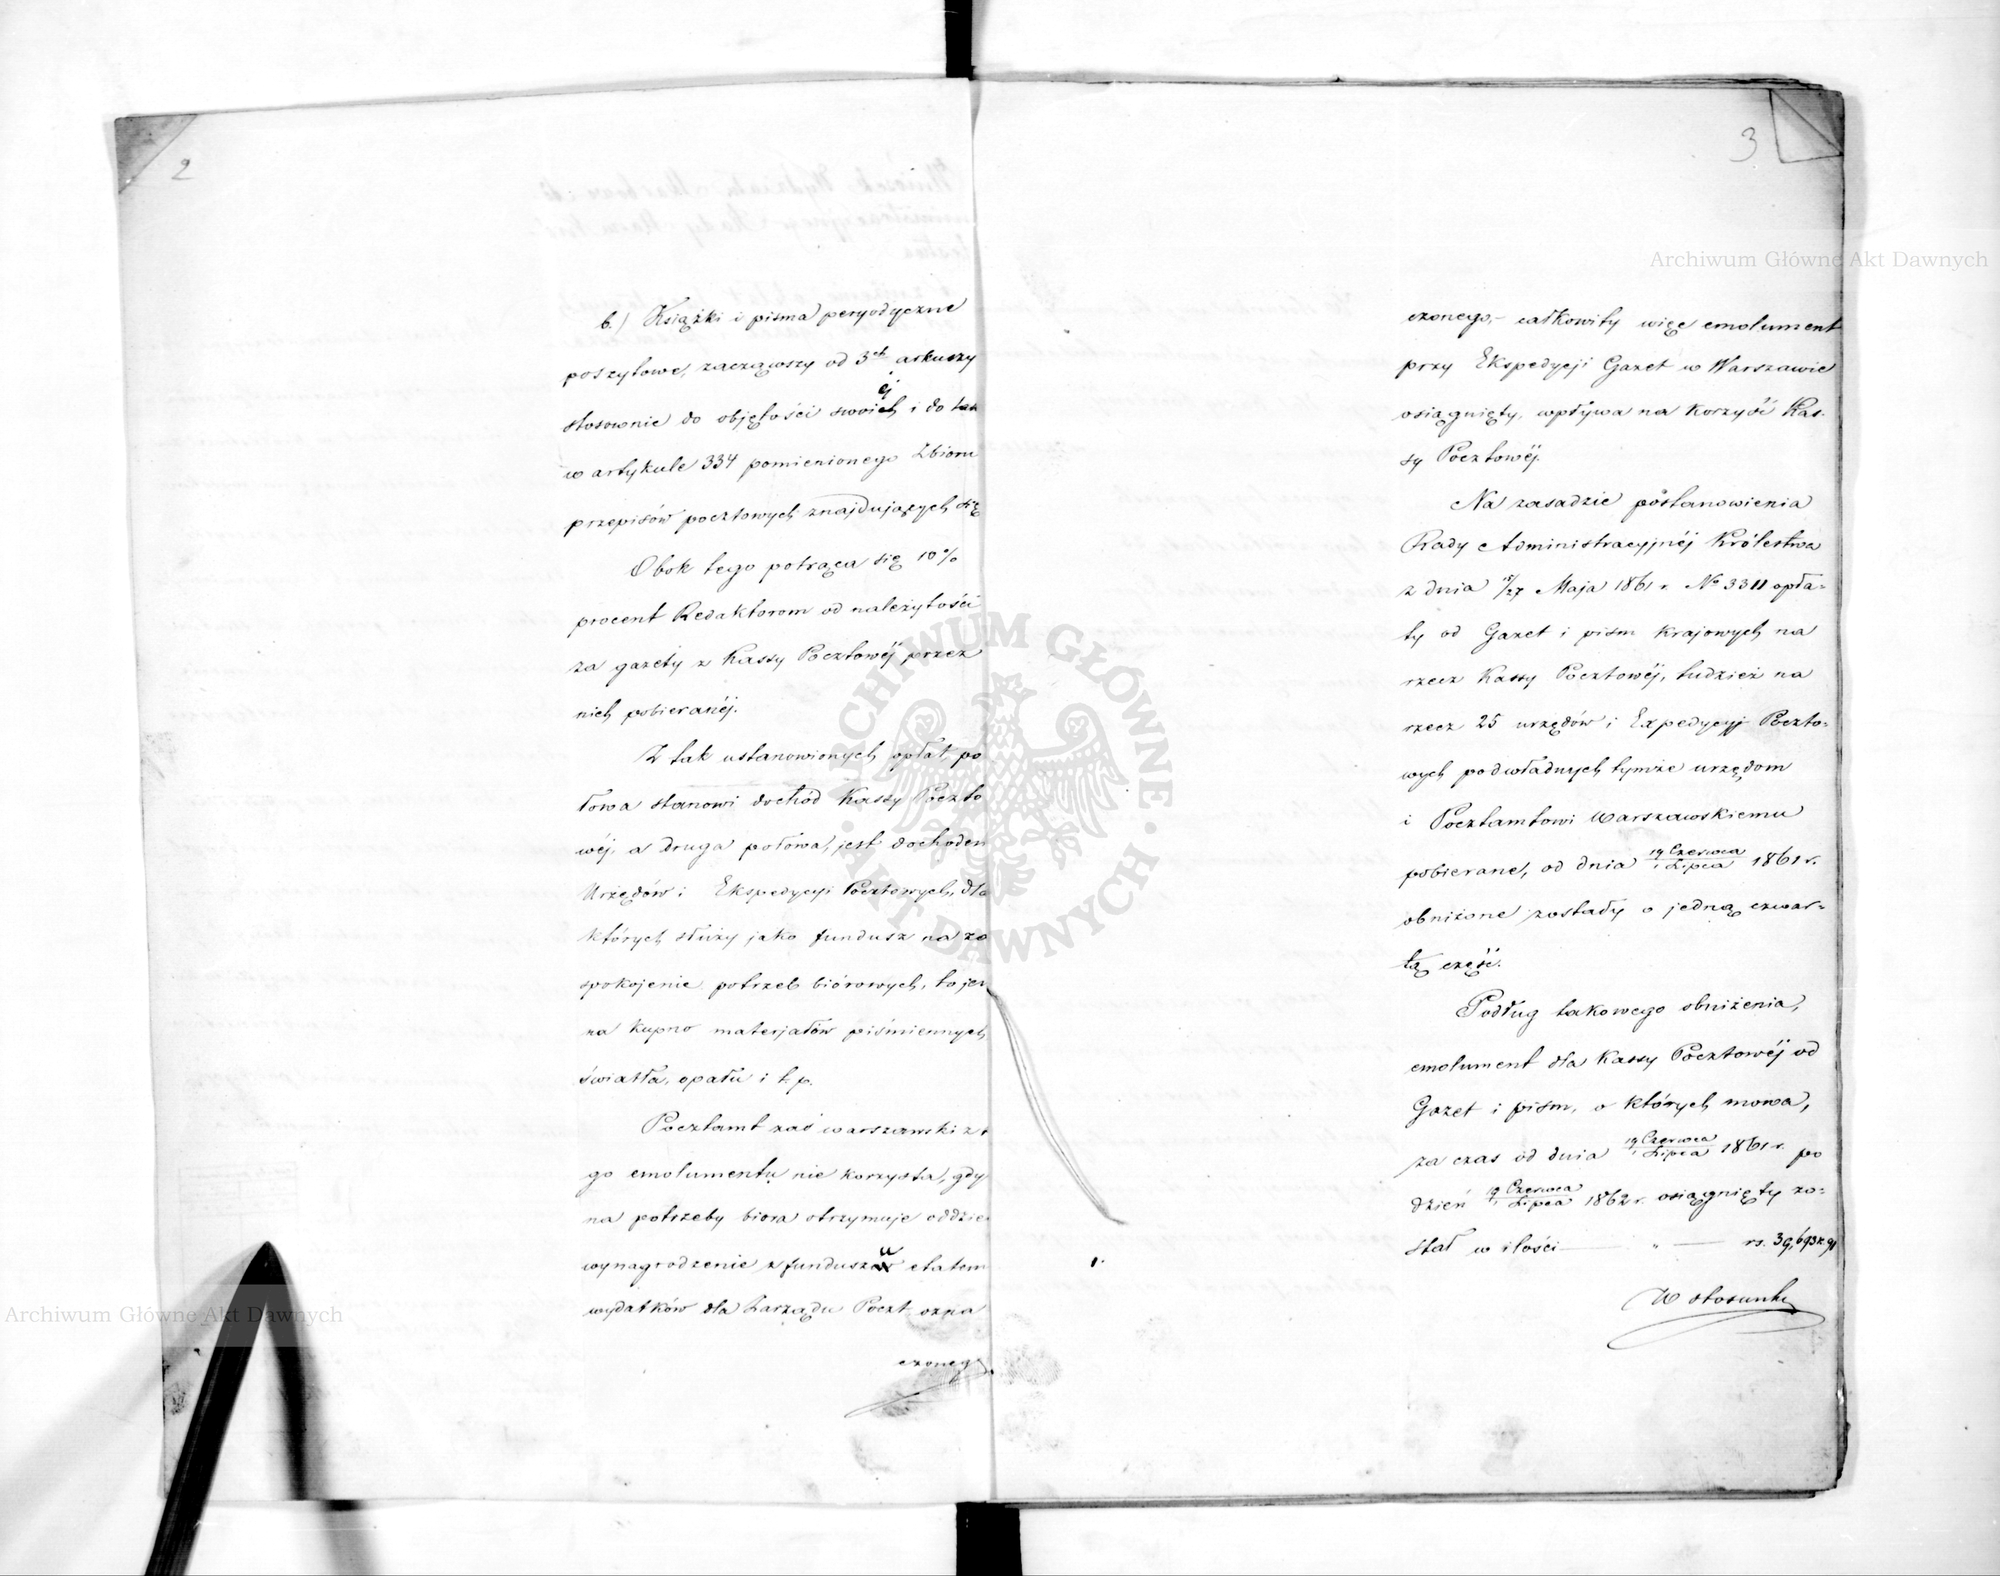 2
b.) Książki i pisma peryodyczne
poszytowe, zacząwszy od 3ch arkuszy
stosownie do objętości swoiej i do tax
w artykule 334 pomienionego Zbioru
przepisów pocztowych znajdujących się
Obok tego potrąca się 10%
procent Redaktorom od należytości
za gazety z Kassy Pocztowéj przez
nich pobieranéj.
Z tak ustanowionych opłat, po
łowa stanowi dochód Kassy Poczto
wéj, a druga połowa, jest dochodem
Urzędów i Ekspedycyi Pocztowych, dla
których służy jako fundusz na za
spokojenie potrzeb biórowych, to jest
na kupno materjałów piśmiennych
światła, opału i t. p.
Pocztamt zaś warszawski z t
go emolumentu nie korzysta, gdy
na potrzeby biora otrzymuje oddzie
wynagrodzenie z funduszu etatem
wydatków dla Zarządu Poczt. ozna
czoneg
3
czonego,- całkowity więc emolument
przy Ekspedycji Gazet w Warszawie
osiągnięty, wpływa na korzyść Kas-
sy Pocztowéj.
Na zasadzie postanowienia
Rady Administracyjnéj Królestwa
z dnia 15/27 Maja 1861 r. No 3311 opła-
ty od Gazet i pism krajowych na
rzecz Kassy Pocztowéj, tudzież na
rzecz 25 urzędów i Expedycyj Poczto-
wych podwładnych tymże urzędom
i Pocztamtowi Warszawskiemu
pobierane, od dnia 19 Czerwca / 1 Lipca 1861 r.
obniżone zostały o jedną czwar-
tą część.
Podług takowego obniżenia,
emolument dla Kassy Pocztowéj od
Gazet i pism, o których mowa,
za czas od dnia 19 Czerwca / 1 Lipca 1861 r. po
dzień 19 Czerwca / 1 Lipca 1862 r. osiągnięty zo-
stał w ilości — „ — rs. 39,693 k. 91
W stosunku
Archiwum Główne Akt Dawnych
Archiwum Główne Akt Dawnych
ARCHIWUM GŁÓWNE AKT DAWNYCH